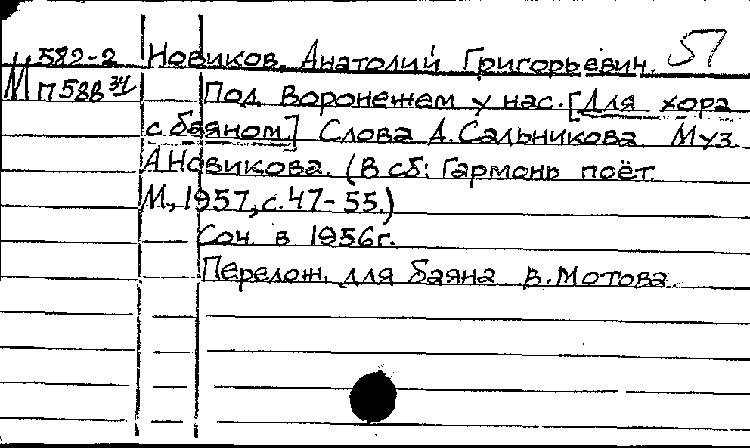 М 582-2 Новиков, Анатолий Григорьевич. 57
П588 Под Воронежем у нас. [Для хора
с баяном.] Слова А. Сальникова. Муз.
А. Новикова. (В сб: Гармонь поёт.
М., 1957, с. 47-55.)
Соч. в 1956г.
Перелож. для баяна В. Мотова.